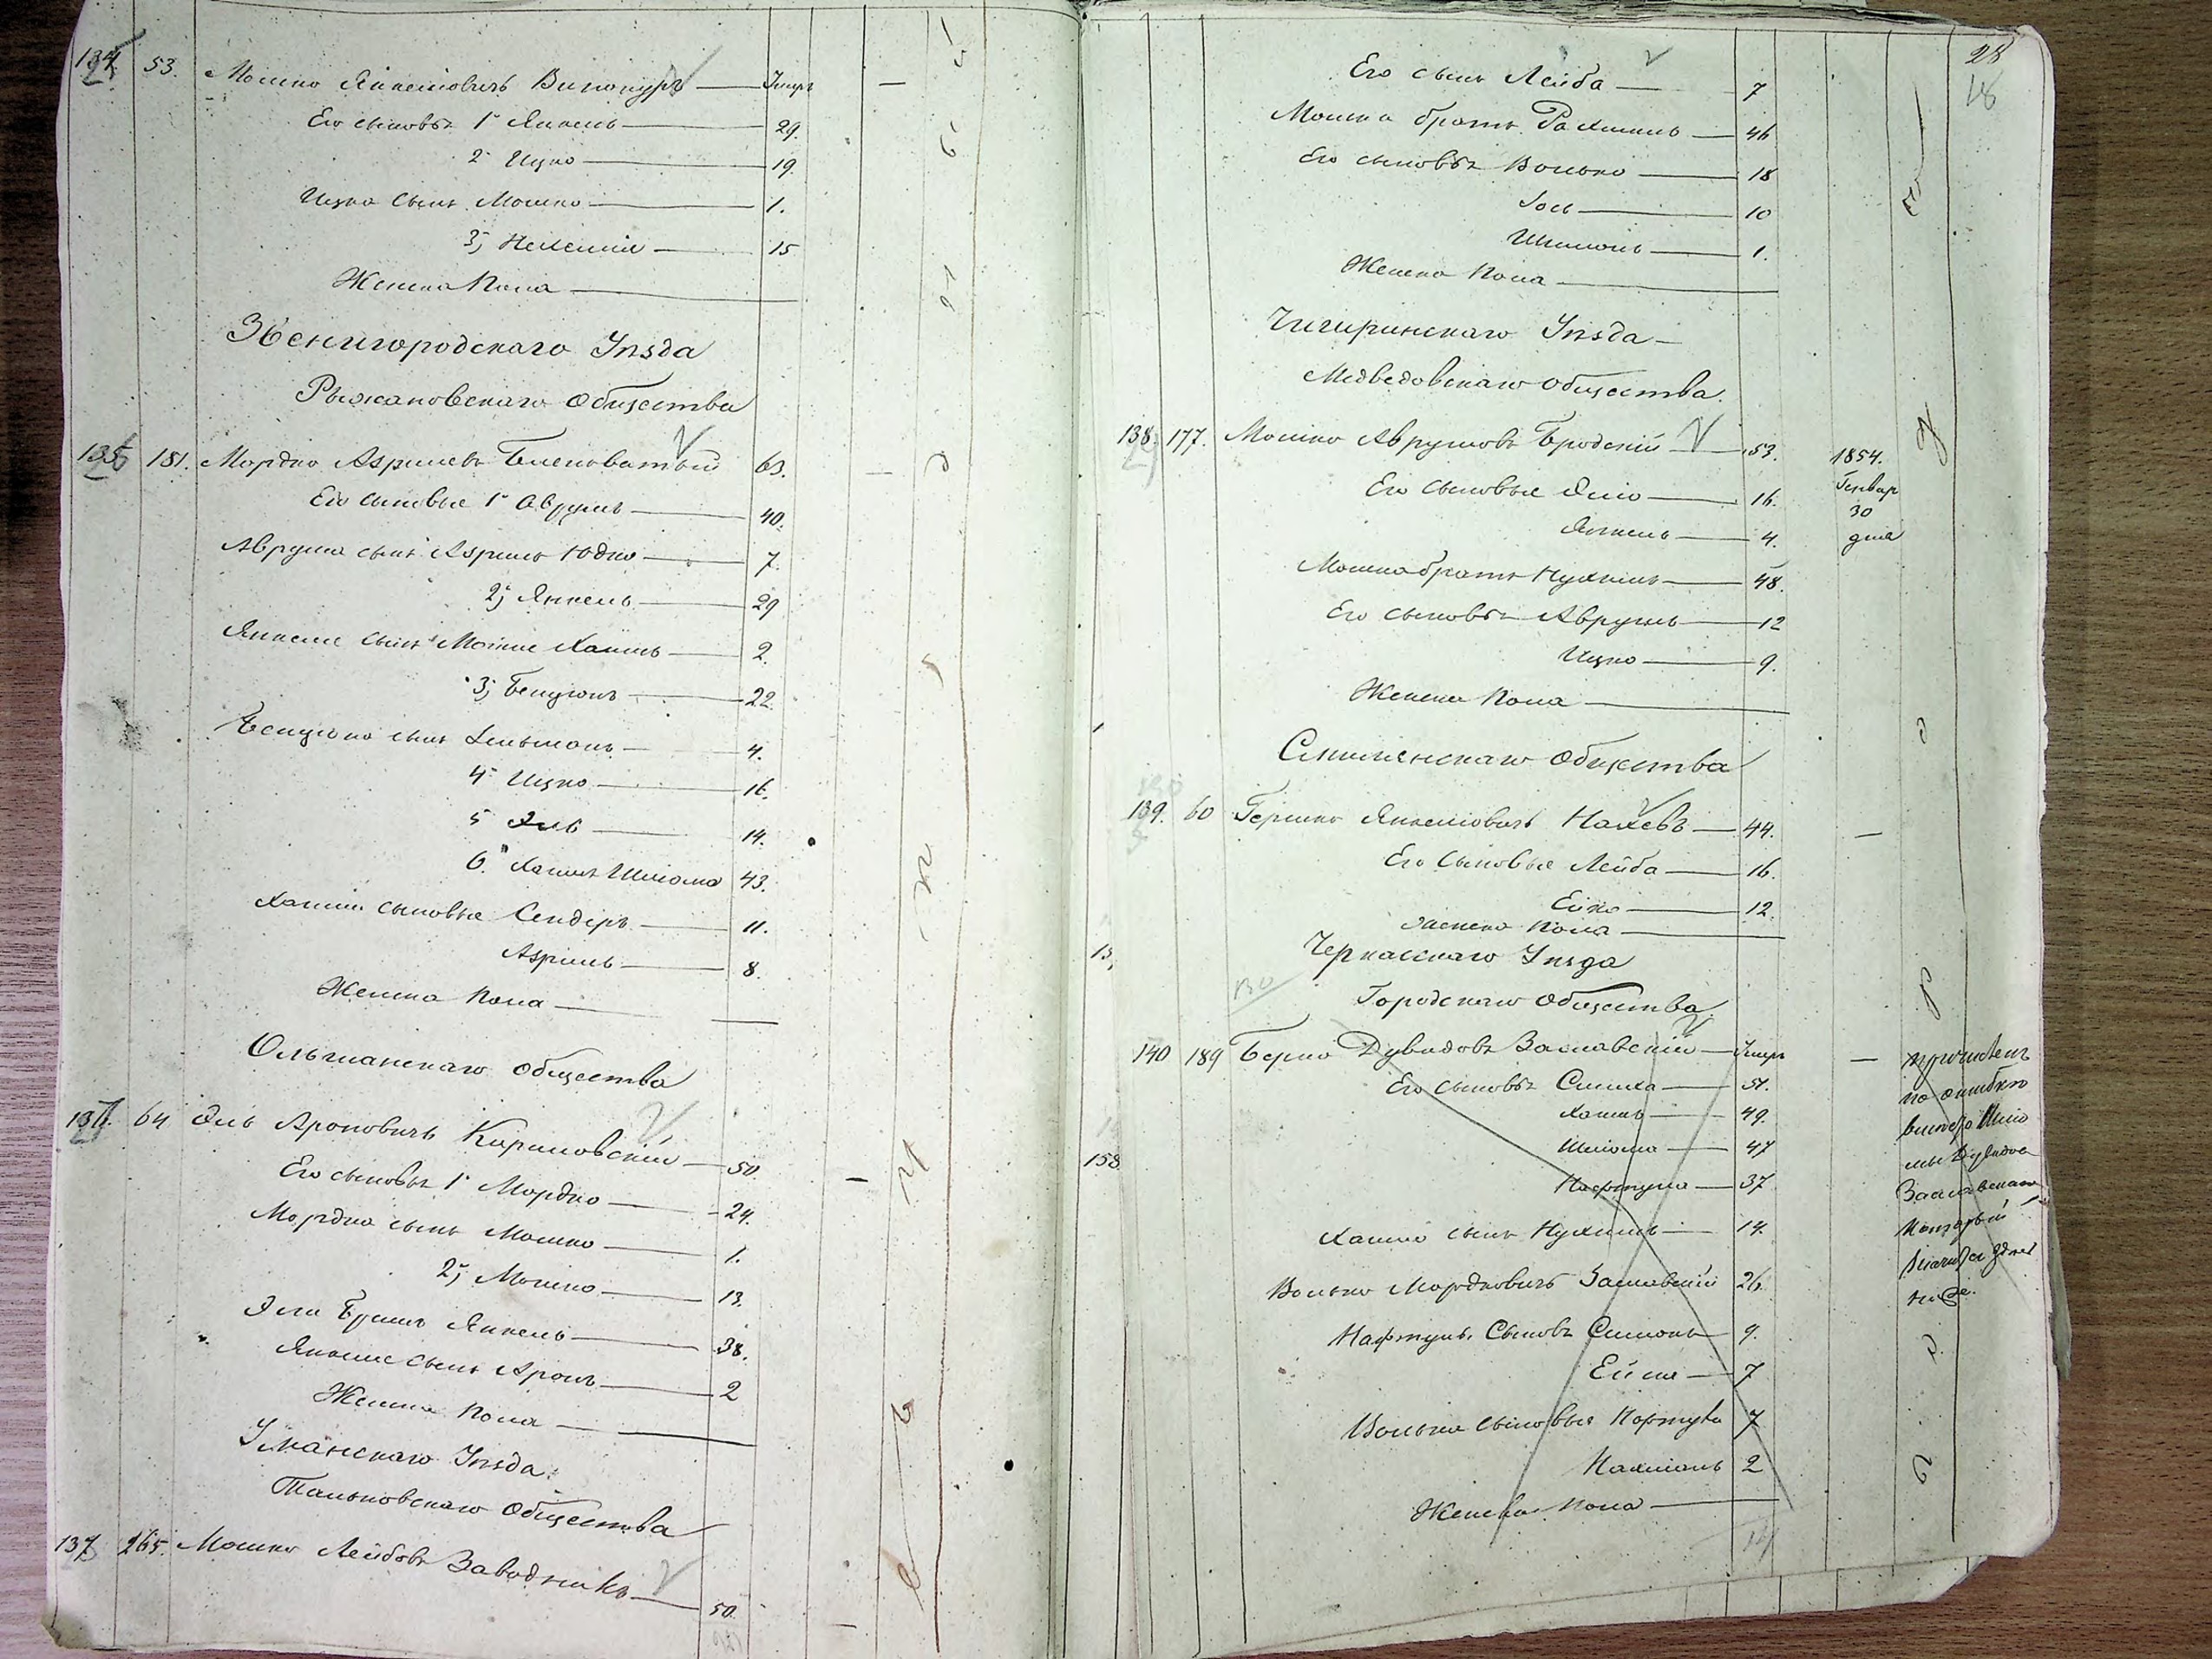 134 53. Мошко Янкелiовичъ Винокуръ — Умеръ —
Его сыновья 1й Янкель — 29.
2й Ицко — 19.
Ицка сынъ Мошко — 1.
3й Нехемiя — 15
Женска Пола —
Звенигородскаго Уѣзда
Рыжановскаго Общества
135 181. Мордко Азрилевъ Биековатый 63. —
Его сыновья 1й Аврумъ — 40.
Аврума сынъ Азриль Юдко — 7.
2й Янкель — 29
Янкеля сынъ Мошко Хаимъ — 2.
3й Бенцiонъ — 22.
Бенцiона сынъ Зельманъ — 4.
4й Ицко — 16.
5 Эль — 14.
6. Хаимъ Шлiома 43.
Хаима сыновья Сендеръ — 11.
Азриль — 8.
Женска Пола —
Ольшанскаго Общества
136. 64 Эль Ароновичъ Кариловскiй — 50. —
Его сыновья 1й Мордко — 24.
Мордка сынъ Мошко — 1.
2й Мошко — 13.
Эля Братъ Янкель — 38.
Янкеля сынъ Аронъ — 2
Женска Пола —
Уманскаго Уѣзда
Тальновскаго Общества
137 265. Мошко Лейбовъ Заводникъ — 50 —
28
18
Его сынъ Лейба — 7
Мошка братъ Рахмиль — 46
Его сыновья Волько — 18
Iось — 10
Шимонъ — 1.
Женска Пола —
Чигиринскаго Уѣзда —
Медведовскаго Общества.
138. 177. Мошко Аврумовъ Бродскiй — 53. 1854.
Генвар
30
дня
Его сыновья — 16.
Янкель — 4.
Мошка братъ Нухимъ — 48.
Его сыновья Аврумъ — 12
Ицко — 9.
Женска Пола —
Смилянскаго Общества
139. 60 Гершко Янкелiовичъ Нахевъ — 44. —
Его сыновья Лейба — 16.
Ейно — 12.
Женска Пола —
Черкасскаго Уѣзда
Городскаго Общества.
140 189 Берко Дувидовъ Заславскiй — Умеръ —
Его сыновья Симха — 51.
Хаимъ — 49.
Шлiома — 47
Нафтула — 37
Хаима сынъ Нухимъ — 14.
Волько Мордковичъ Заславскiй 26.
Нафтулы Сыновья Симонъ — 9.
Ейна — 7
Волька сыновья Нафтула 7
Нахманъ 2
Женска Пола —
причисленъ
по ошибкѣ
вмѣсто Шлiо
мы Дувидов
Заславскаго
который
значится здѣсь
ниже.
13,
158